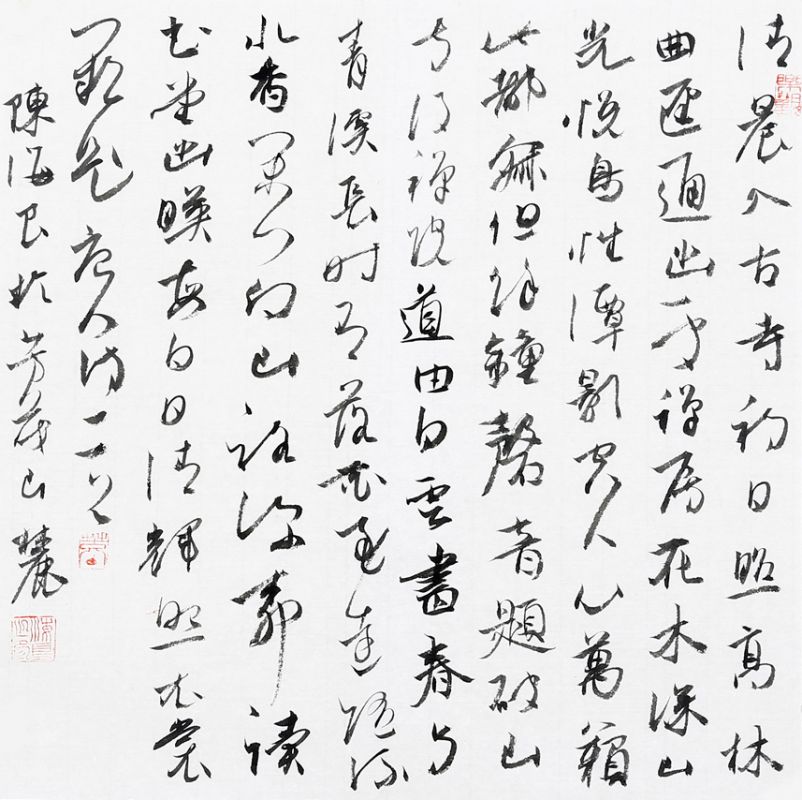 清晨入古寺初日照高林
曲逕通幽處禪房花木深山
光悅鳥性潭影空人心萬籟
此都寂但餘鐘磬音題破山
寺後禪院道由白雲盡春與
青溪長時有落花至遠隨流
水香閑門向山路深柳讀
書堂幽暎每白日清輝照衣裳
闕題唐人詩二首
陳海良於芳茂山麓